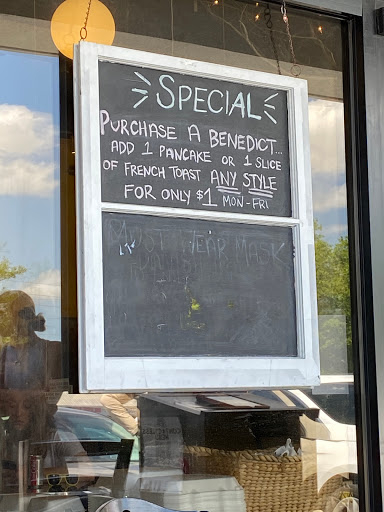 SPECIAL
PURCHASE A BENEDICT...
ADD 1 PANCAKE OR 1 SLICE
OF FRENCH TOAST ANY STYLE
FOR ONLY $1 MON-FRI
MUST WEAR MASK